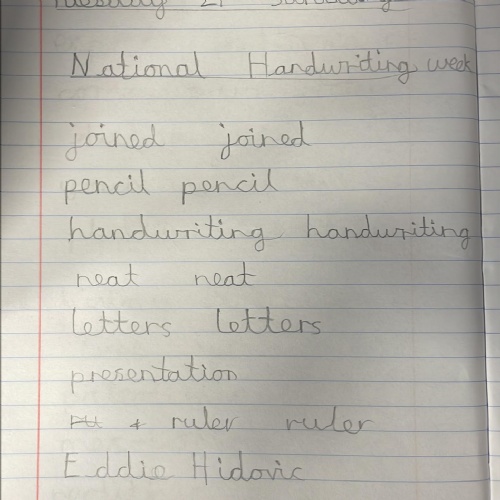 Tuesday 21 January
National Handwriting week
joined joined
pencil pencil
handwriting handwriting
neat neat
letters letters
presentation
ruler ruler
Eddie Hidovic